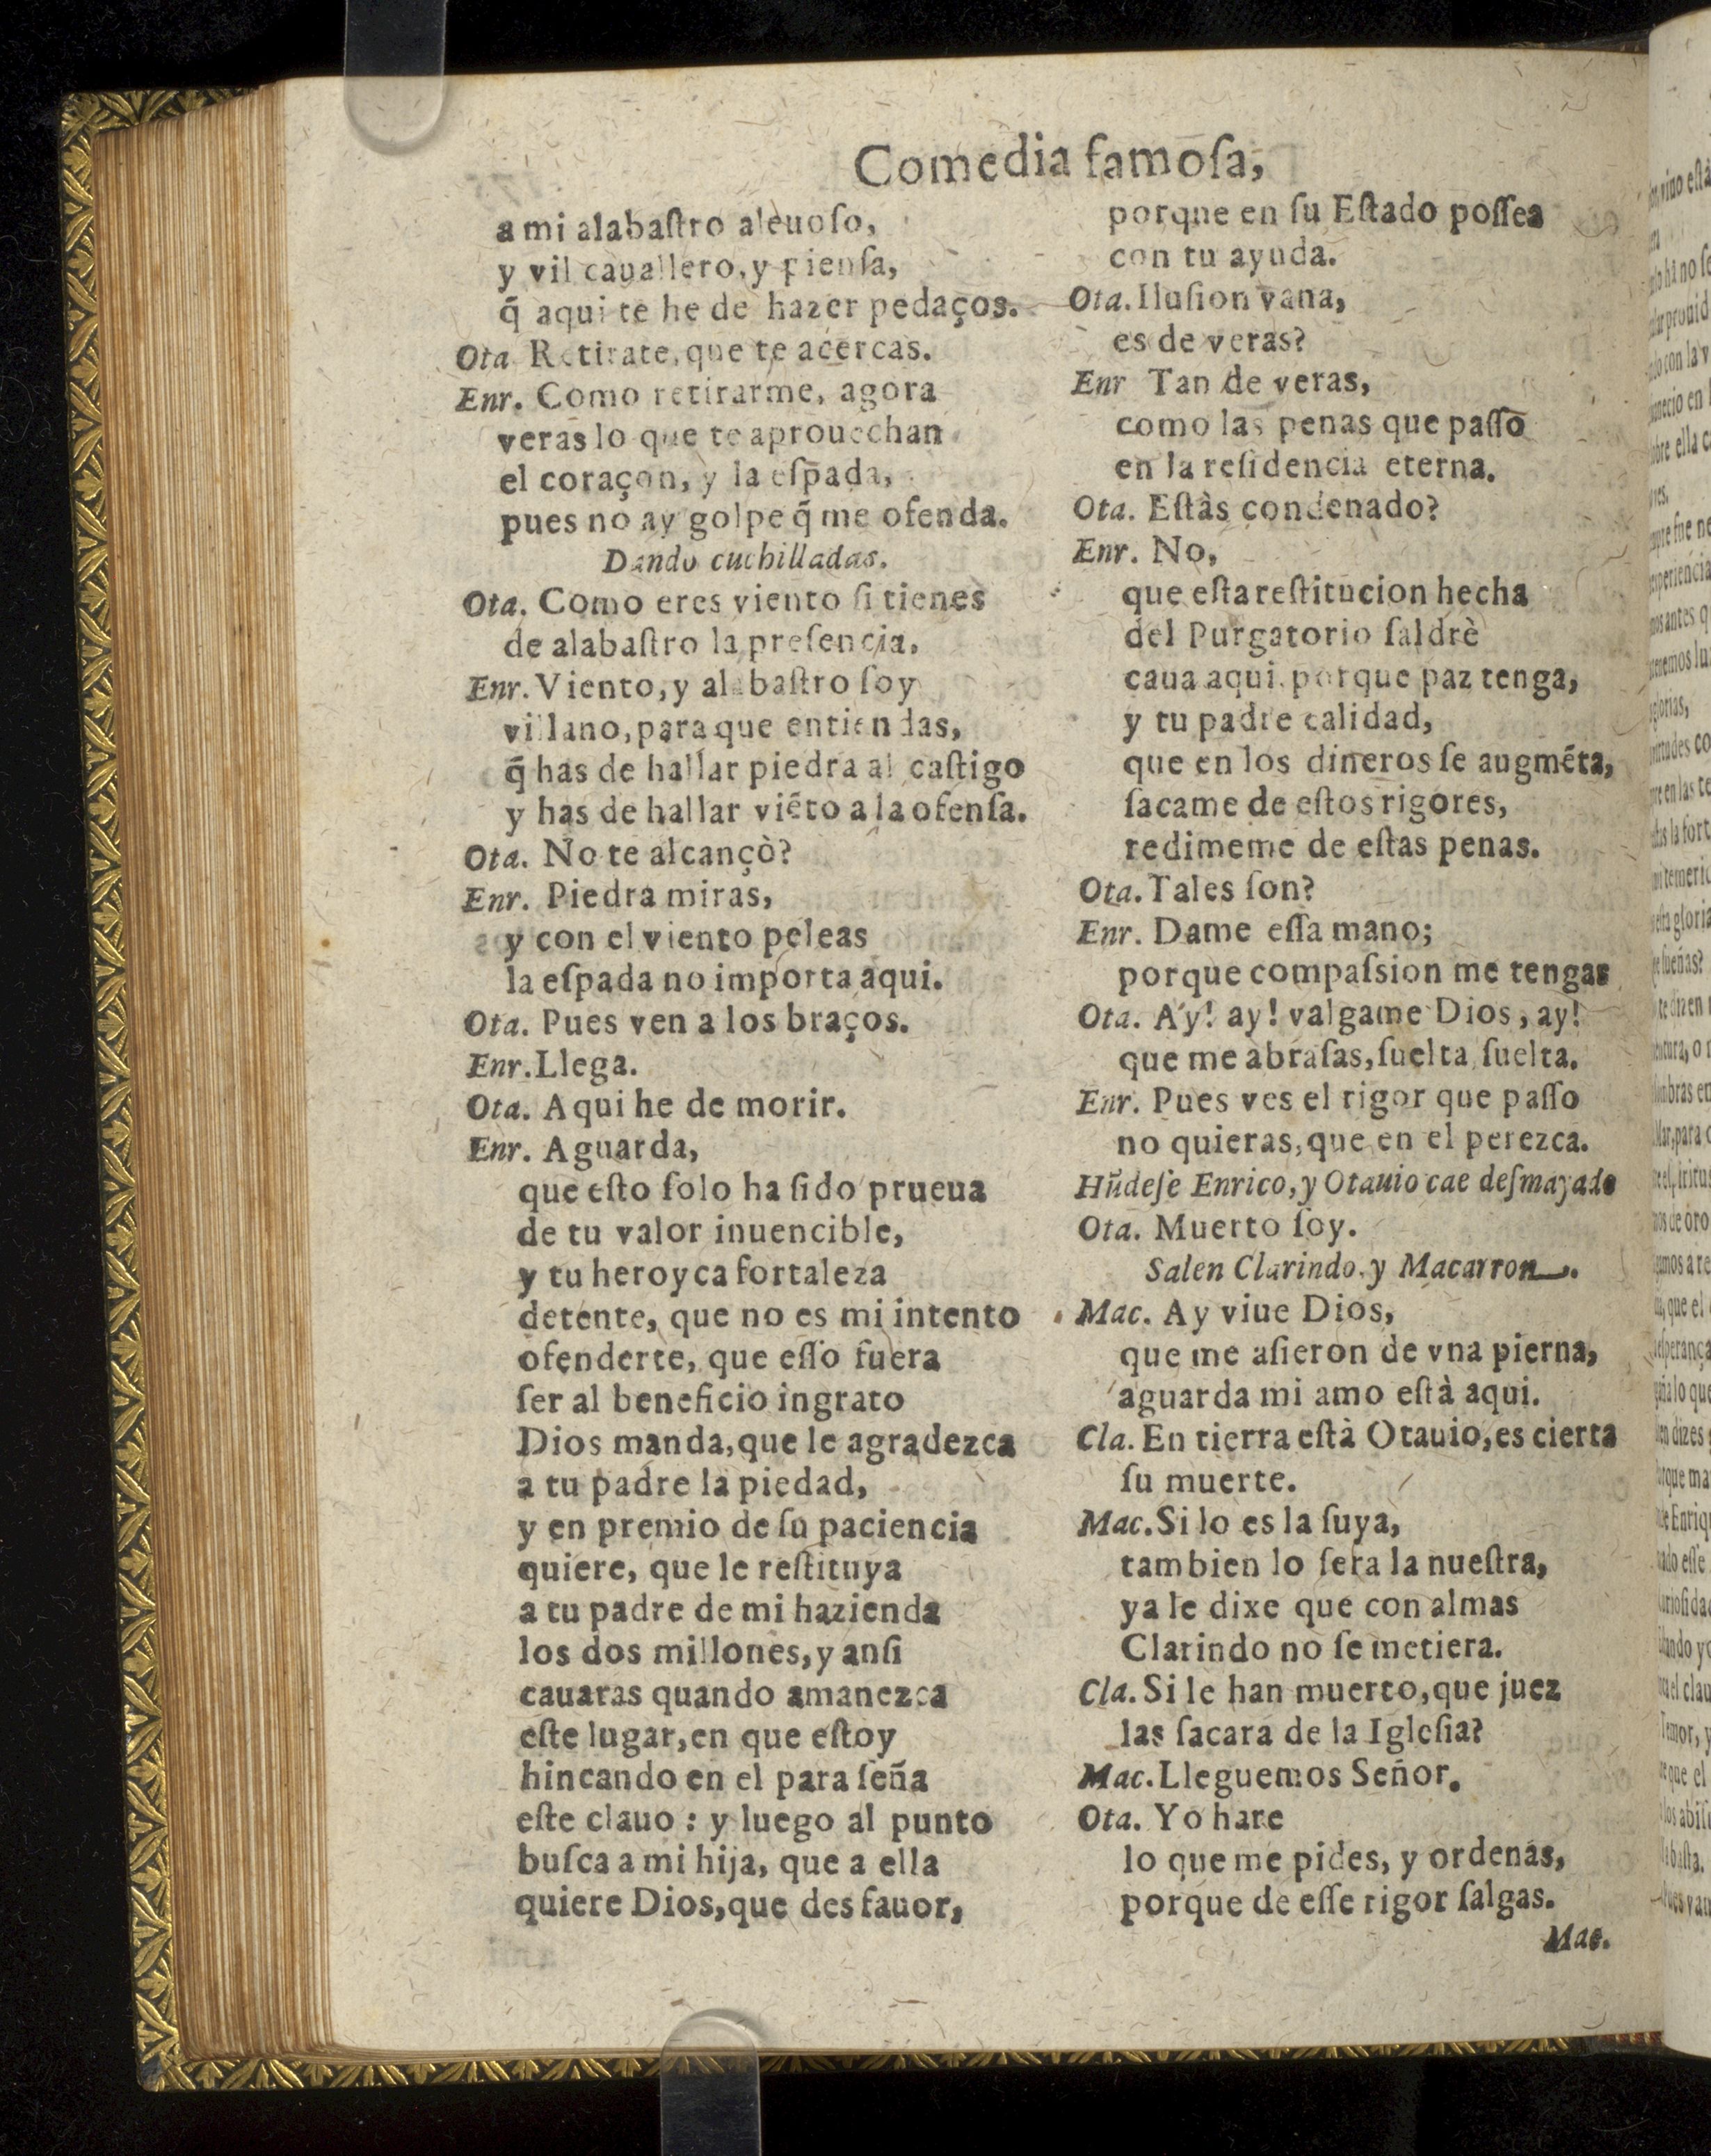 Comedia famoſa,
a mi alabaſtro aleuoſo,
y vil cauallero, y pienſa,
q̃ aqui te he de hazer pedaços.
Ota Retirate, que te acercas.
Enr. Como retirarme, agora
veras lo que te aprouechan
el coraçon, y la eſpada,
pues no ay golpe q̃ me ofenda.
Dando cuchilladas.
Ota. Como eres viento ſi tienes
de alabaſtro la preſencia.
Enr. Viento, y alabaſtro ſoy
villano, para que entiendas,
q̃ has de hallar piedra al caſtigo
y has de hallar viẽto a la ofenſa.
Ota. No te alcançò?
Enr. Piedra miras,
y con el viento peleas
la eſpada no importa aqui.
Ota. Pues ven a los braços.
Enr. Llega.
Ota. Aqui he de morir.
Enr. Aguarda,
que eſto ſolo ha ſido prueua
de tu valor inuencible,
y tu heroyca fortaleza
detente, que no es mi intento
ofenderte, que eſſo fuera
ſer al beneficio ingrato
Dios manda, que le agradezca
a tu padre la piedad,
y en premio de ſu paciencia
quiere, que le reſtituya
a tu padre de mi hazienda
los dos millones, y anſi
cauaras quando amanezca
eſte lugar, en que eſtoy
hincando en el para ſeña
eſte clauo : y luego al punto
buſca a mi hija, que a ella
quiere Dios, que des fauor,
porque en ſu Eſtado poſſea
con tu ayuda.
Ota. Iluſion vana,
es de veras?
Enr Tan de veras,
como las penas que paſſo
en la reſidencia eterna.
Ota. Eſtàs condenado?
Enr. No,
que eſta reſtitucion hecha
del Purgatorio ſaldrè
caua aqui. porque paz tenga,
y tu padre calidad,
que en los dineros ſe augmẽta,
ſacame de eſtos rigores,
redimeme de eſtas penas.
Ota. Tales ſon?
Enr. Dame eſſa mano;
porque compaſsion me tengas
Ota. Ay! ay! valgame Dios, ay!
que me abraſas, ſuelta, ſuelta.
Enr. Pues ves el rigor que paſſo
no quieras, que en el perezca.
Hũdeſe Enrico, y Otauio cae deſmayado
Ota. Muerto ſoy.
Salen Clarindo, y Macarron.
Mac. Ay viue Dios,
que me aſieron de vna pierna,
aguarda mi amo eſtà aqui.
Cla. En tierra eſtà Otauio, es cierta
ſu muerte.
Mac. Si lo es la ſuya,
tambien lo ſera la nueſtra,
ya le dixe que con almas
Clarindo no ſe metiera.
Cla. Si le han muerto, que juez
las ſacara de la Igleſia?
Mac. Lleguemos Señor.
Ota. Yo hare
lo que me pides, y ordenas,
porque de eſſe rigor ſalgas.
Mac.